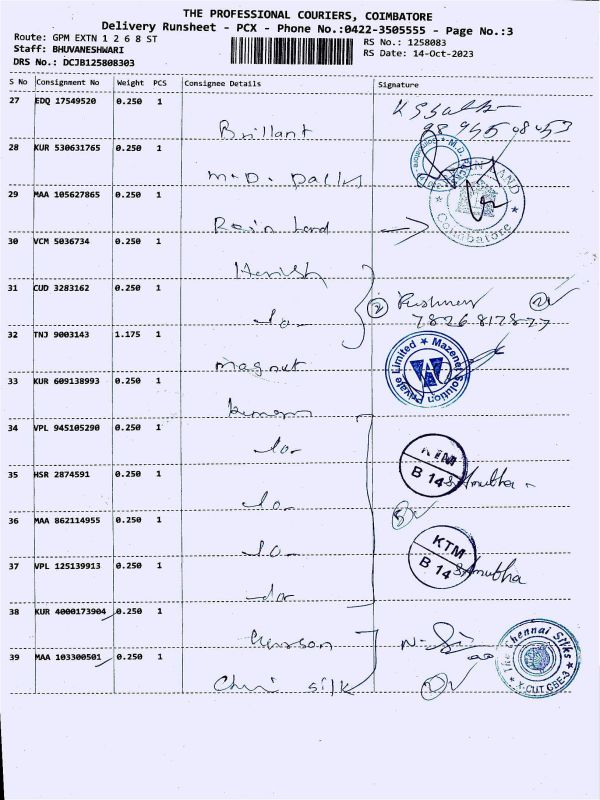 THE PROFESSIONAL COURIERS, COIMBATORE
Delivery Runsheet - PCX - Phone No.:0422-3505555 - Page No.:3
Route: GPM EXTN 1 2 6 8 ST
RS No.: 1258083
Staff: BHUVANESHWARI
RS Date: 14-Oct-2023
DRS No.: DCJB125808303
S No Consignment No Weight PCS Consignee Details Signature
27 EDQ 17549520 0.250 1
Brillant
28 KUR 530631765 0.250 1
M.D. Pack
29 MAA 105627865 0.250 1
Rain Land
Coimbatore
30 VCM 5036734 0.250 1
Harish
31 CUD 3283162 0.250 1
2
do-
7826817877
32 TNJ 9003143 1.175 1
Magnet
Mazenet Solution Private Limited
33 KUR 609138993 0.250 1
34 VPL 945105290 0.250 1
do-
KTM
B 14
35 HSR 2874591 0.250 1
S Anutha
do-
36 MAA 862114955 0.250 1
do-
KTM
B 14
37 VPL 125139913 0.250 1
S Anutha
do-
38 KUR 4000173904 0.250 1
39 MAA 103300501 0.250 1
The Chennai Silks
X-CUT CBE-3
Chennai silk